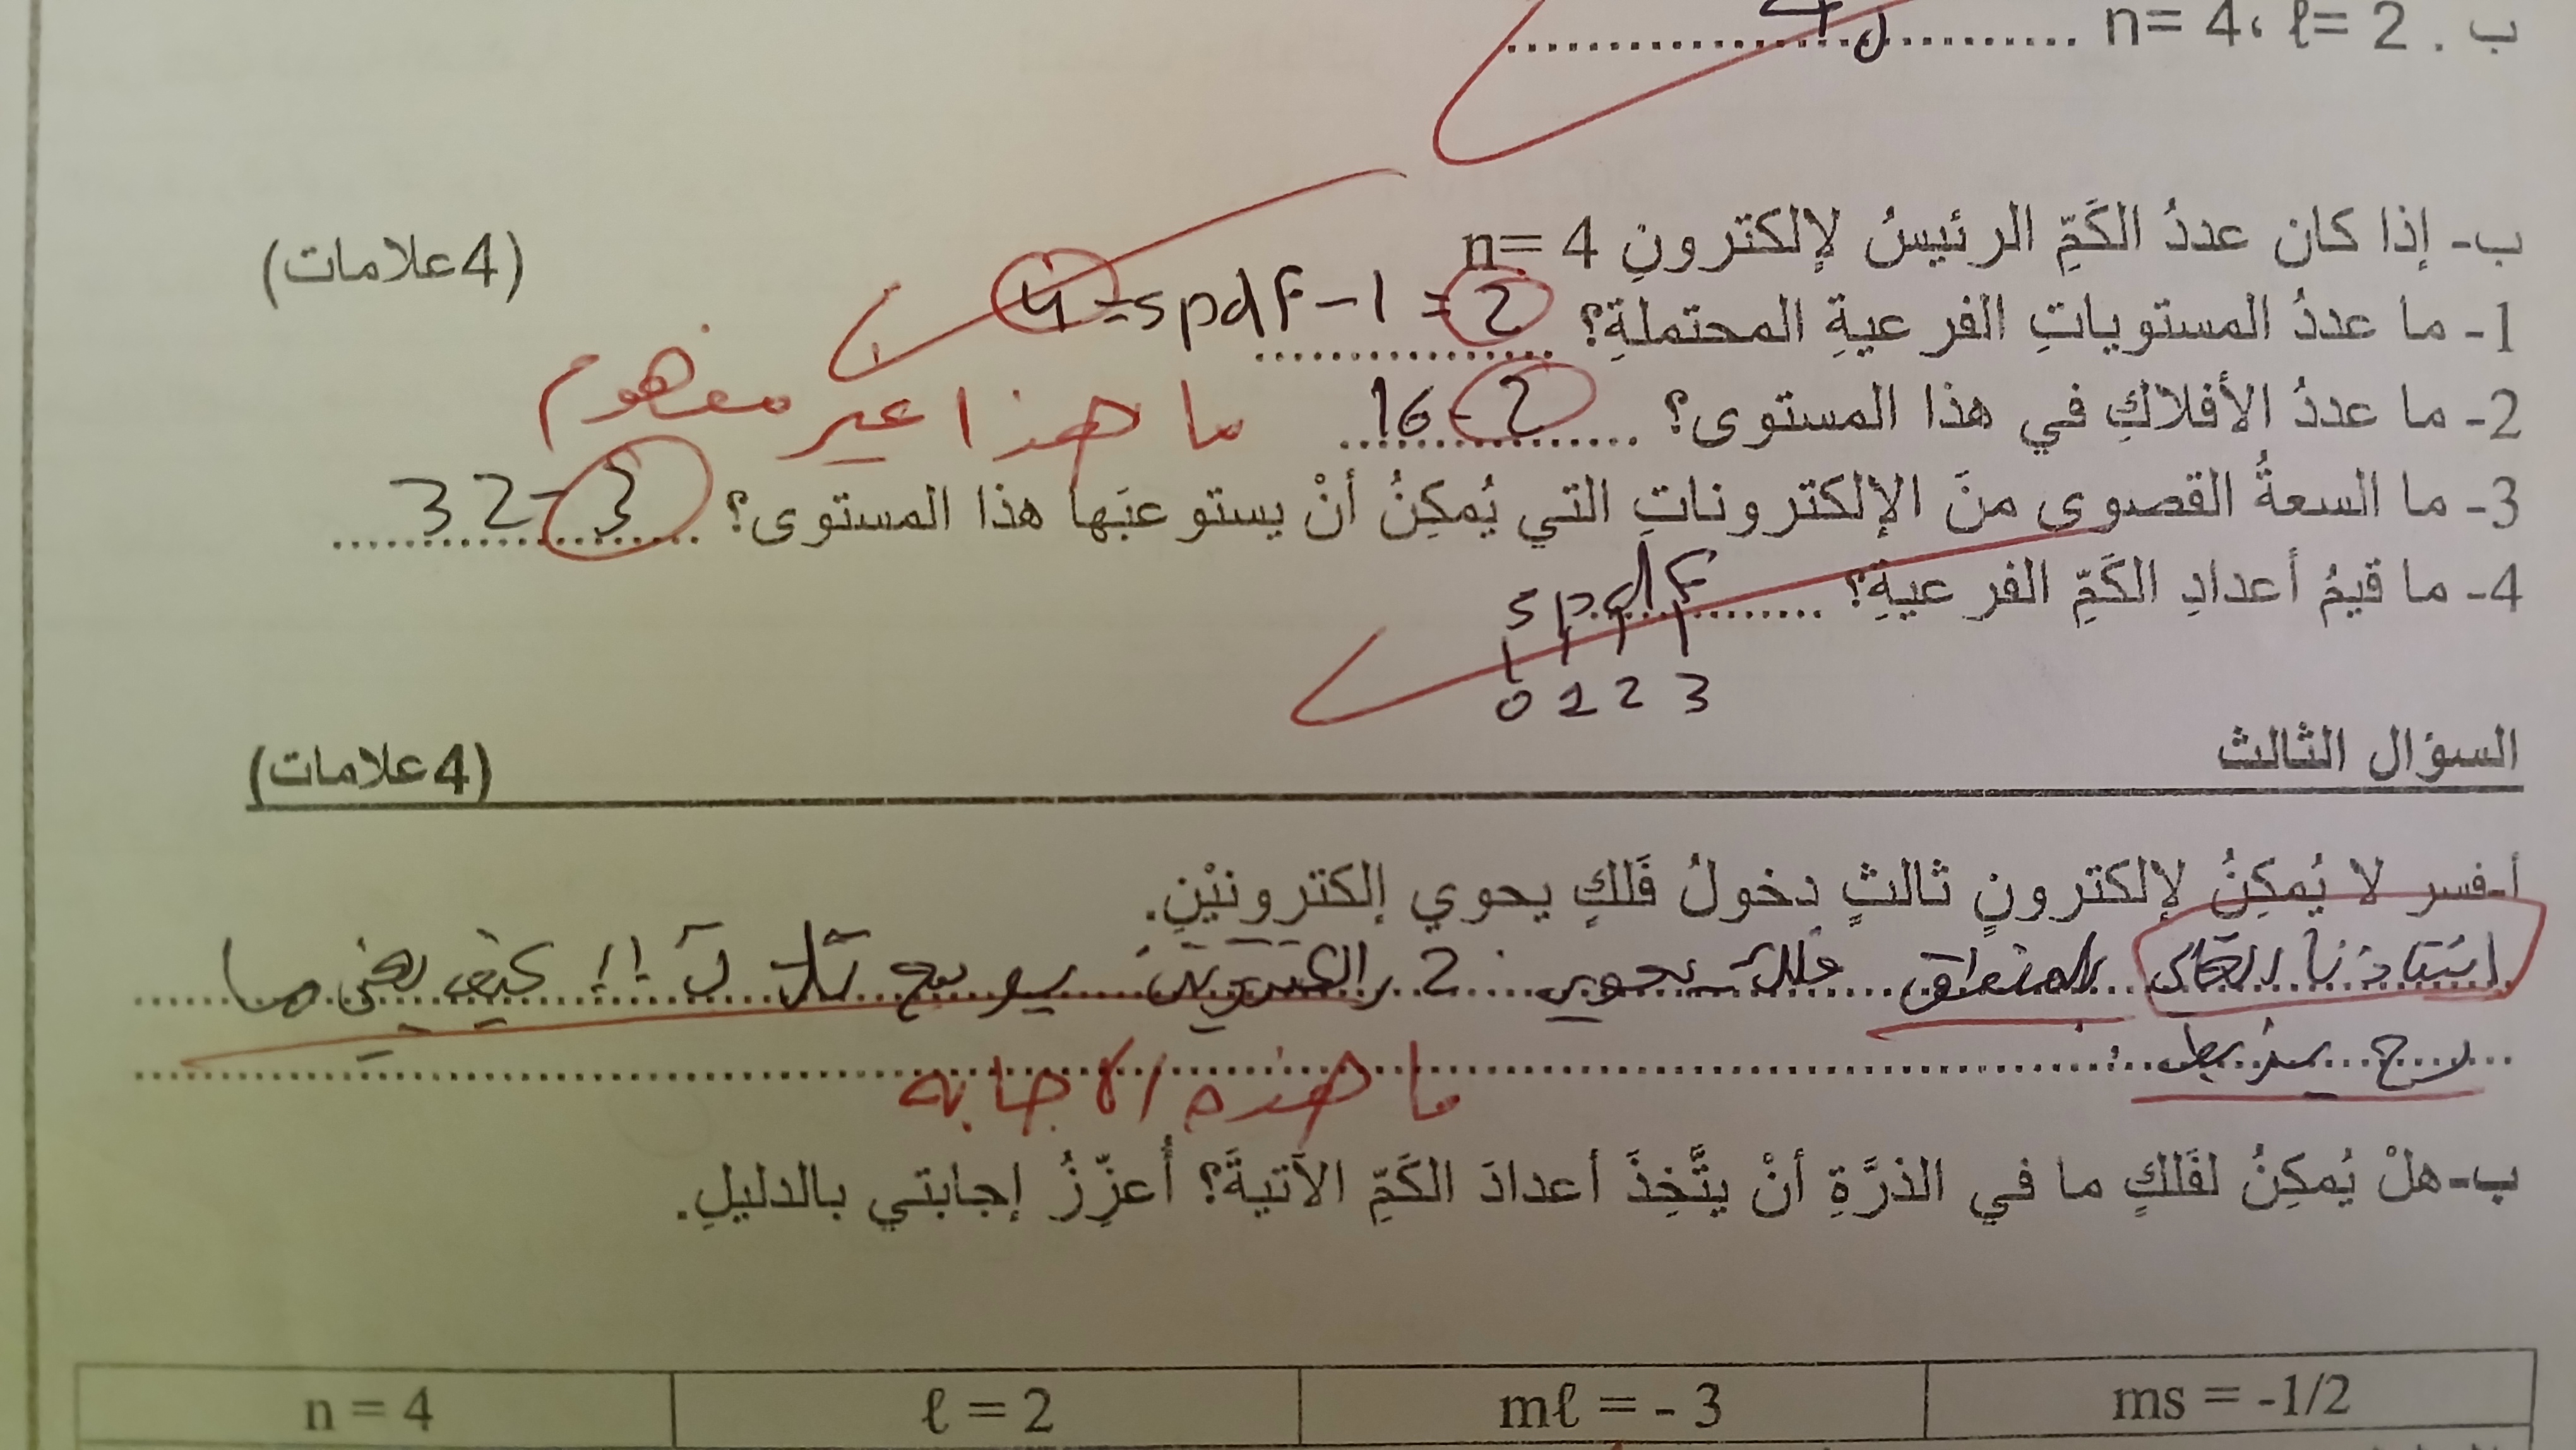 ب. n= 4، ℓ= 2 ............ 4d
ب- إذا كان عددُ الكَمِّ الرئيسُ لإلكترونِ n= 4 (4علامات)
1- ما عددُ المستوياتِ الفرعيةِ المحتملةِ؟ 4 = spdf - 1 = 2
2- ما عددُ الأفلاكِ في هذا المستوى؟ 16 - 2 ما هذا غير مفهوم
3- ما السعةُ القصوى منَ الإلكتروناتِ التي يُمكِنُ أنْ يستوعبَها هذا المستوى؟ 32 - 3
4- ما قيمُ أعدادِ الكَمِّ الفرعيةِ؟ spdf
0 1 2 3
السؤال الثالث (4علامات)
أ-فسر لا يُمكِنُ لإلكترونٍ ثالثٍ دخولُ فَلكٍ يحوي إلكترونيْنِ.
بالمنطق فلك يحوي 2 كيف يعني ما
رح يزبط
ما هذه الاجابه
ب-هلْ يُمكِنُ لفَلكٍ ما في الذرَّةِ أنْ يتَّخِذَ أعدادَ الكَمِّ الآتيةَ؟ أُعزِّزُ إجابتي بالدليلِ.
n = 4 ℓ = 2 mℓ = - 3 ms = -1/2